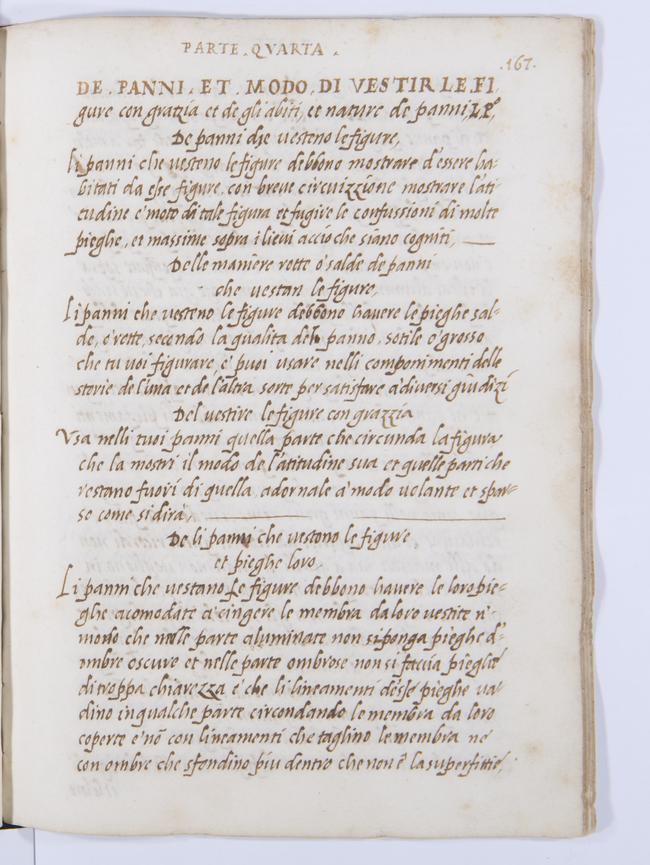 PARTE . QVARTA .
.167.
DE . PANNI . ET . MODO . DI VESTIR LE.FI.
gure con gratia et de gli abiti, et nature de panni,
De panni che vesteno le figure,
li panni che vesteno le figure debbono mostrare d'essere ha-
bitati da esse figure, con breve circuizzione mostrare l'ati-
tudine e' moto di tale figura et fugire le confussioni di molte
pieghe, et massime sopra i lievi accio che siano cogniti,
Delle maniere rotte o' salde de panni
che vestan le figure,
Li panni che vesteno le figure debbono havere le pieghe sal-
de, o' rotte, secondo la qualita del panno, sotile o' grosso
che tu voi figurare, e' puoi usare nelli componimenti delle
storie de l'una et de l'altra sorte per satisfare a' diversi giudizi
Del vestire le figure con grazzia
Vsa nelli tuoi panni quella parte che circunda la figura
che la mostri il modo de l'atitudine sua et quelle parti che
restano fuori di quella adornale a' modo volante et spar-
se come si dirà,
De li panni che vestono le figure
et pieghe loro,
Li panni che vestano le figure debbono havere le loro pie-
ghe acomodate a' cingere le membra da loro vestite n'
modo che nelle parte aluminate non si ponga pieghe d'
ombre oscure et nelle parte ombrose non si faccia pieghe
di troppa chiarezza e' che li lineamenti d'esse pieghe va-
dino in qualche parte circondando le membra da loro
coperte e' nō con lineamenti che taglino le membra ne'
con ombre che sfondino piu dentro che non è la superfittie,